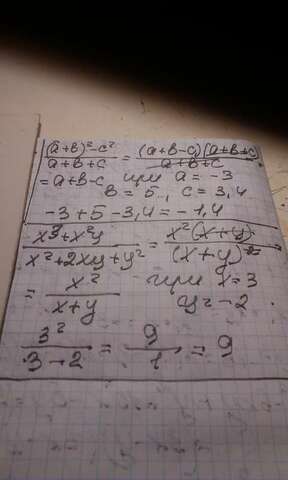 (a+b)²-c² / a+b+c = (a+b-c)(a+b+c / a+b+c
= a+b-c при a = -3
b = 5, c = 3,4
-3+5-3,4 = -1,4
x³+x²y / x²+2xy+y² = x²(x+y) / (x+y)²
= x² / x+y при x=3
y=-2
3² / 3-2 = 9 / 1 = 9